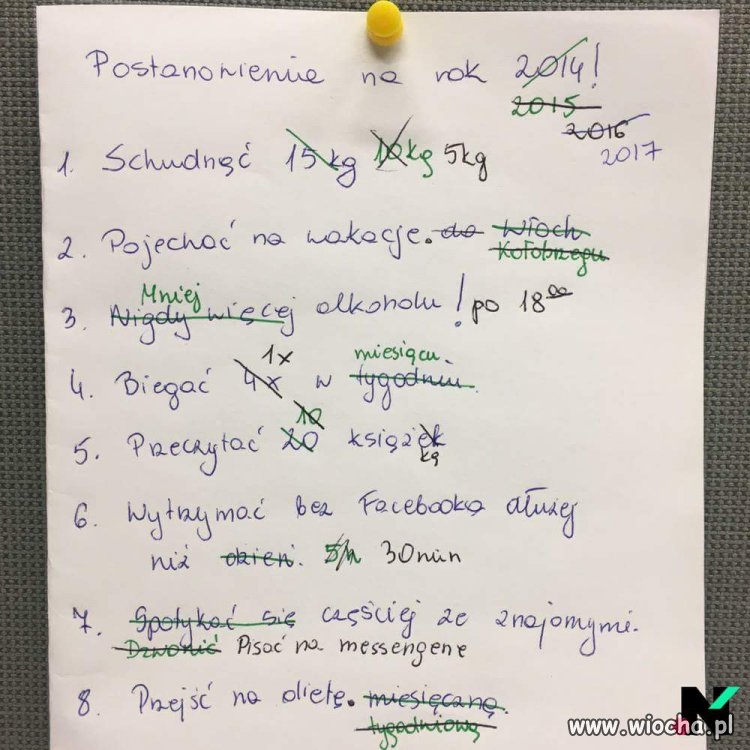 Postanowienie na rok 2014!
2015
2016
2017
1. Schudnąć 15 kg 10 kg 5kg
2. Pojechać na wakacje. do Włoch
Kołobrzegu
Mniej
3. Nigdy więcej alkoholu! po 18⁰⁰
1x miesiącu.
4. Biegać 4x w tygodniu.
10
5. Przeczytać 20 książek
kę
6. Wytrzymać bez Facebooka dłużej
niż dzień. 5h 30min
7. Spotykać się częściej ze znajomymi.
Dzwonić Pisać na messengerze
8. Przejść na dietę. miesięczną.
tygodniową
www.wiocha.pl